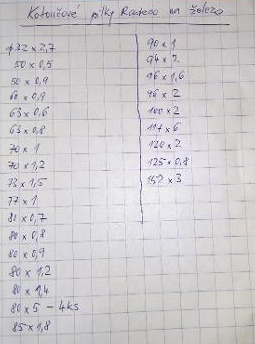 Kotoučové pilky na železo
ø32 x 2,7
50 x 0,5
50 x 0,9
60 x 0,9
63 x 0,6
63 x 0,8
70 x 1
70 x 1,2
73 x 1,5
77 x 1
80 x 0,7
80 x 0,8
80 x 0,9
80 x 1,2
80 x 1,4
80 x 5 - 4ks
85 x 1,8
90 x 1
94 x 2
96 x 1,6
96 x 2
100 x 2
117 x 6
120 x 2
125 x 0,8
x 3